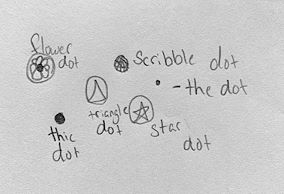 flower
dot
scribble dot
- the dot
triangle
dot
star
dot
thic
dot